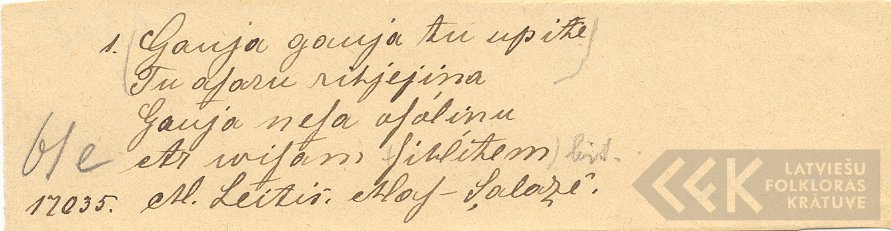 1. (Gauja gauja tu upite)
Tu asaru rihjejina
Gauja nesa osólinu
Ar wisam (sihlitem)
17035. M. Leitis. Mas-Salazê.
LATVIEŠU
FOLKLORAS
KRĀTUVE